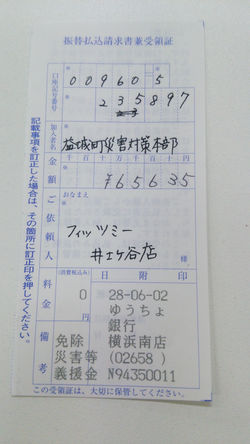 振替払込請求書兼受領証
口座記号番号
00960 5
235897
加入者名
益城町災害対策本部
金額
千百十万千百十円
¥65635
ご依頼人
おなまえ
フィッツミー
井土ケ谷店
料金
(消費税込み)
0
円
日附印
28-06-02
ゆうちょ
銀行
横浜南店
(02658)
N94350011
備考
免除
災害等
義援金
記載事項を訂正した場合は、その箇所に訂正印を押してください。
この受領証は、大切に保管してください。